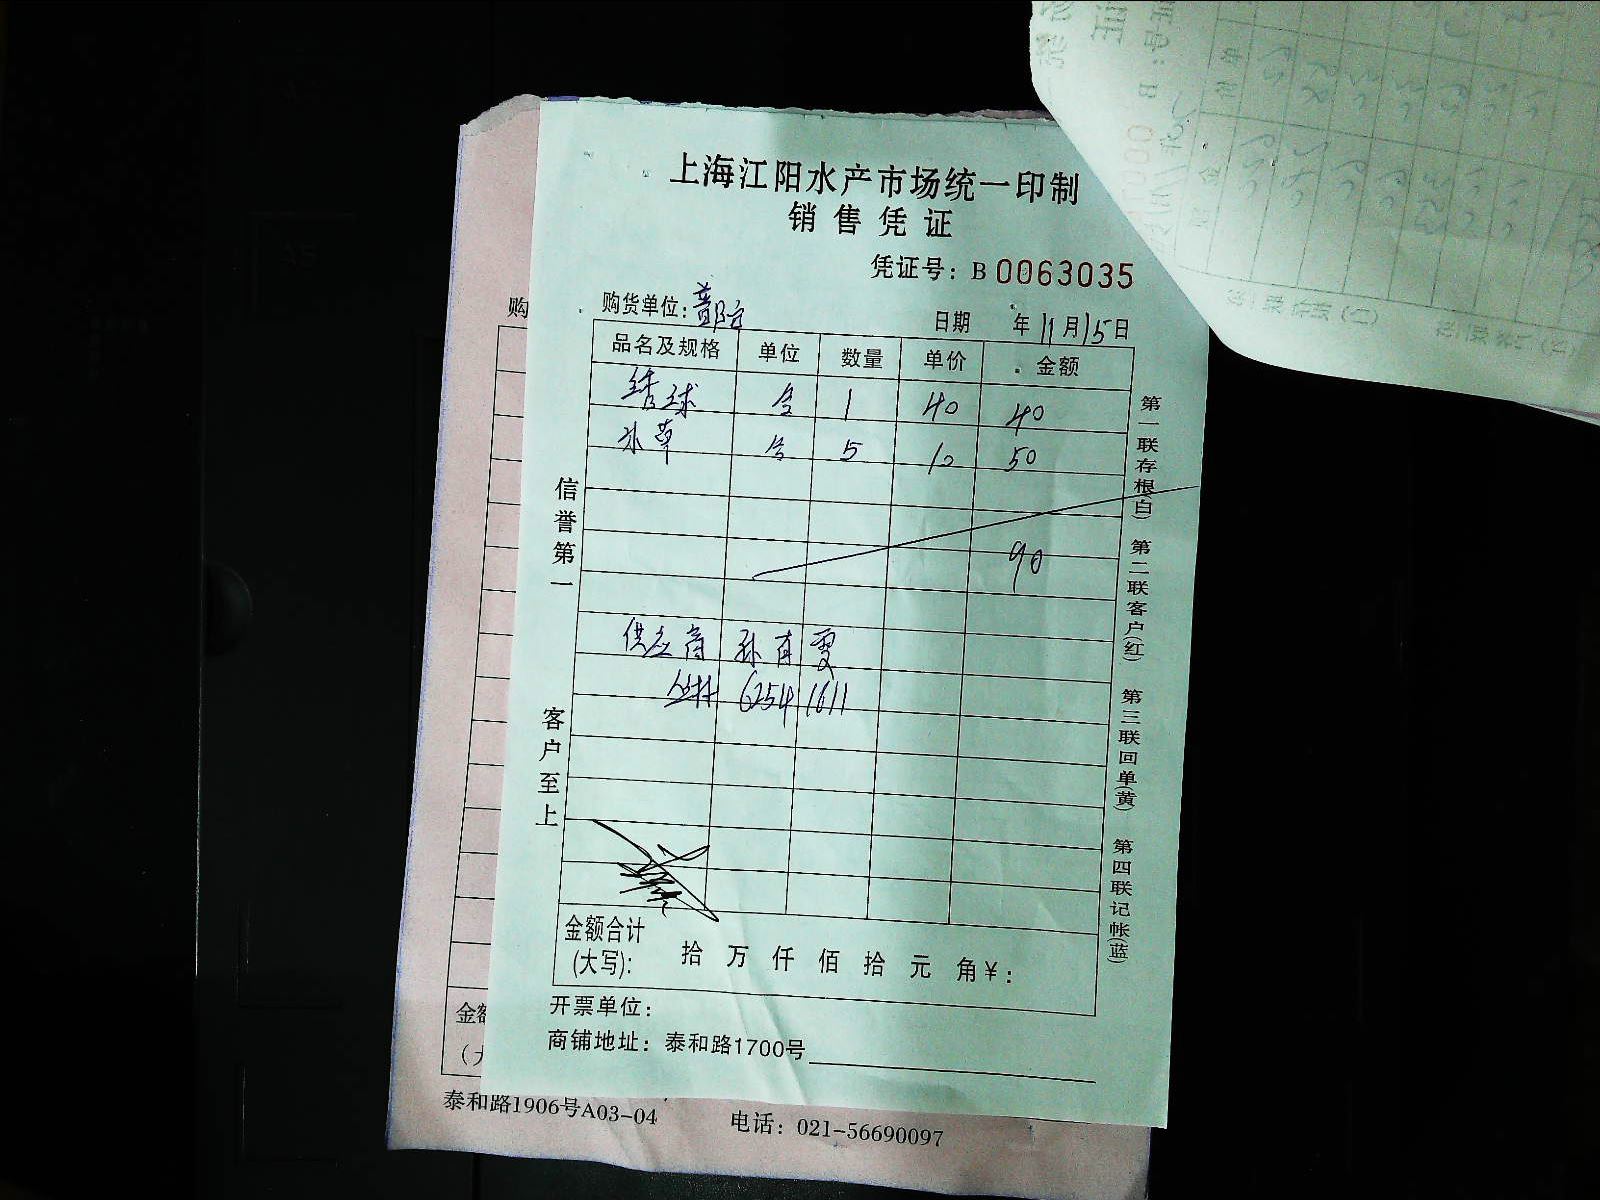 上海江阳水产市场统一印制
销售凭证
凭证号：B 0063035
购货单位：
日期 年 11 月 15 日
品名及规格 单位 数量 单价 金额
绣球 1 40 40
水草 5 10 50
90
供应商 孙有雯
丛林 62541611
金额合计
(大写)： 拾 万 仟 佰 拾 元 角 ¥：
开票单位：
商铺地址：泰和路1700号
信誉第一
客户至上
第一联存根(白) 第二联客户(红) 第三联回单(黄) 第四联记帐(蓝)
购
金额
(大
泰和路1906号A03-04 电话：021-56690097